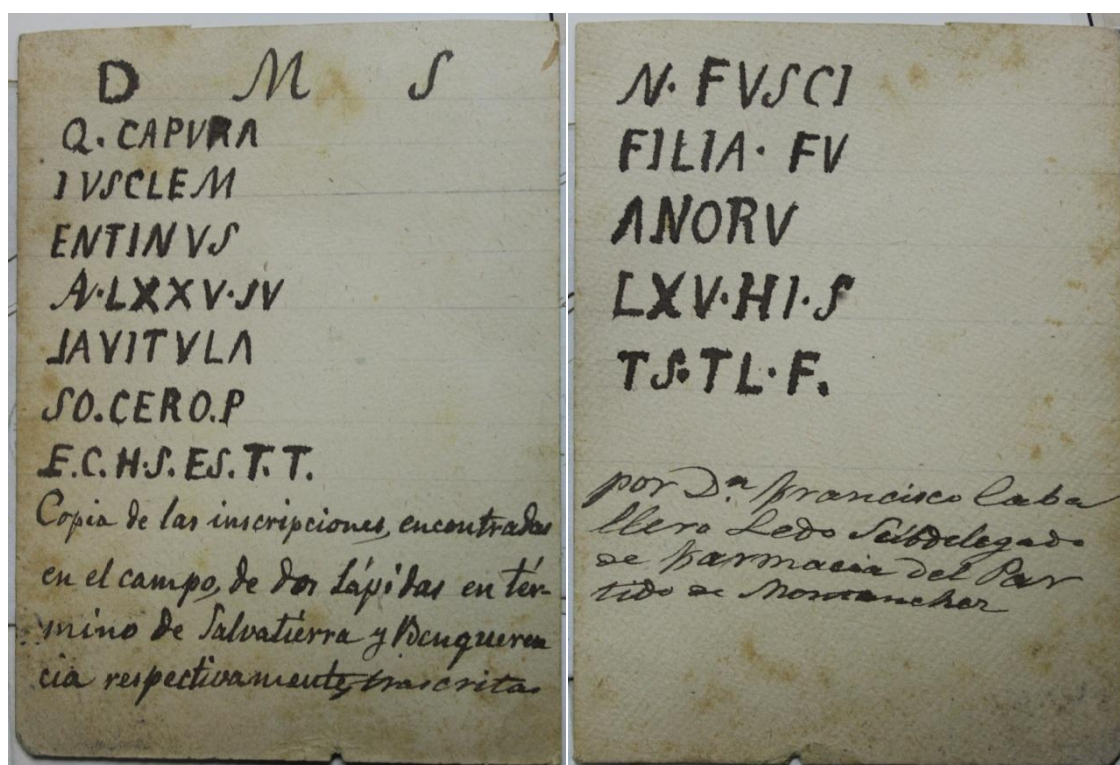 D M S
Q. CAPVRA
IVSCLEM
ENTINVS
A·LXXV·JV
JAVITVLA
SO.CERO.P
E.C.H.S.ES.T.T.
Copia de las inscripciones, encontradas
en el campo, de dos Lápidas en tér-
mino de Salvatierra y Benqueren
cia respectivamente, trascritas
N· FVSCI
FILIA· FV
ANORV
LXV·HI·S
TS·TL·F.
por Dn Francisco Caba
llero Ledo Subdelegado
de Farmacia del Par
tido de Montanchez